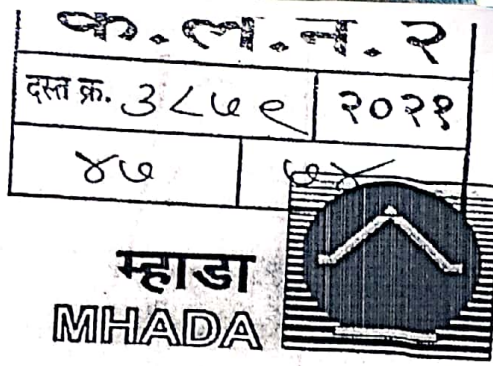 क. ल. न. २
दस्त क्र. ३८७९ २०२१
४७ ७४
म्हाडा
MHADA